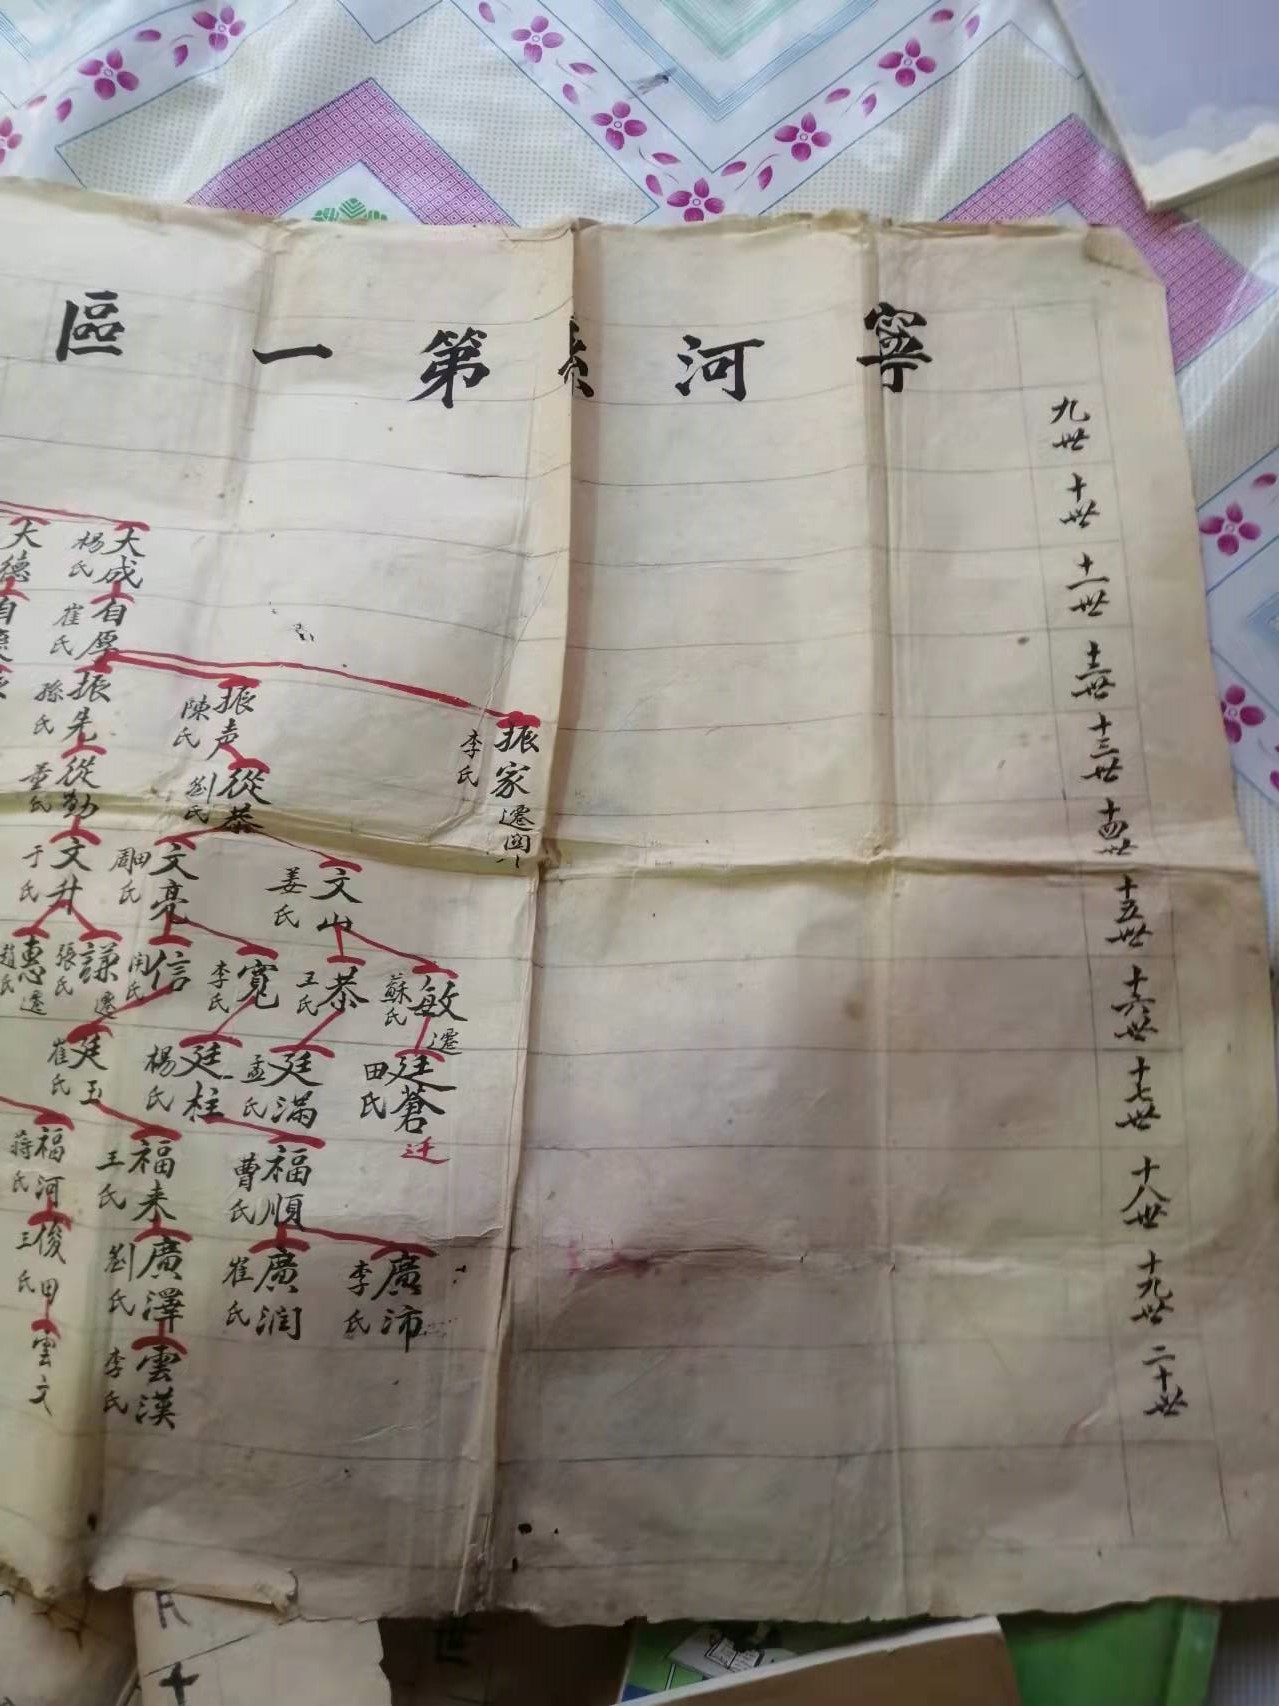 寧河縣第一區
九世
十世
十一世
十二世
十三世
十四世
十五世
十六世
十七世
十八世
十九世
二十世
大成 楊氏
大德
自厚 崔氏
振家 李氏 遷關
振声 陳氏
振先 孫氏
從恭 劉氏
從勤 董氏
文山 姜氏
文亮 周田氏
文升 于氏
敏 蘇氏 遷
恭 王氏
寬 李氏
信
謙 張氏 遷
惠 趙氏 遷
廷蒼 田氏 迁
廷满 孟氏
廷柱 楊氏
廷玉 崔氏
福順 曹氏
福来 王氏
福河 蒋氏
廣沛 李氏
廣润 崔氏
廣澤 劉氏
俊田 王氏
雲漢 李氏
雲文